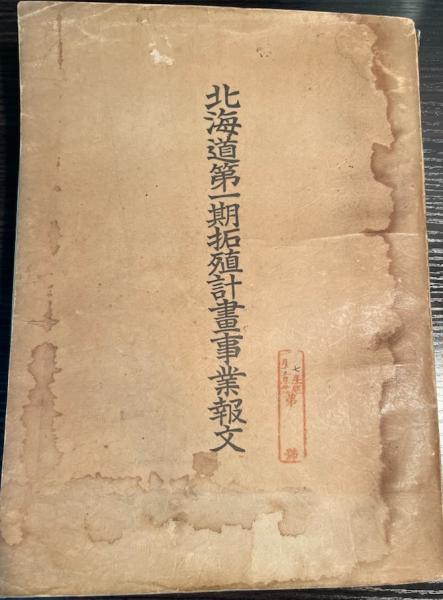 北海道第一期拓殖計畫事業報文
第 號